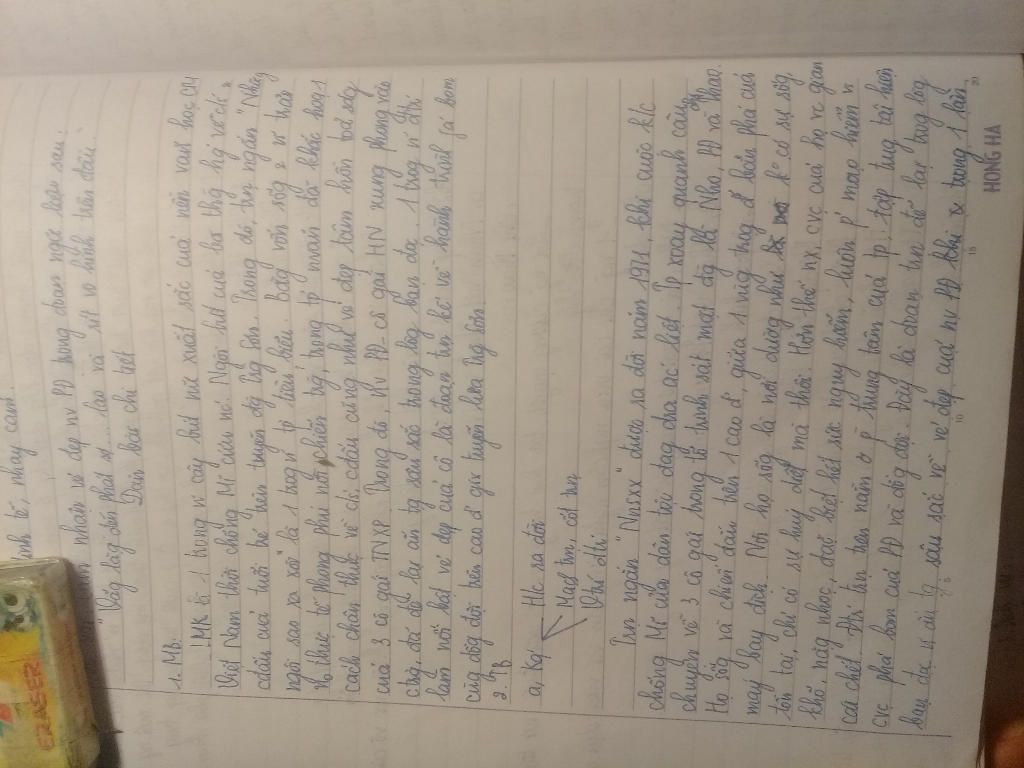 tinh tế nhạy cảm.
nhân vẻ đẹp nv PĐ trong đoạn ngữ liệu sau:
"Vắng lặng đến phát sợ ... leo và sít vô hình trên đầu".
Dàn bài chi tiết
1. MB.
LMK là 1 trong n~ cây bút nữ xuất sắc của nền văn học CM
Việt Nam thời chống Mĩ cứu nc. Ngòi bút của bà thg hg về đề
cđấu của tuổi trẻ trên tuyến đg Trg Sơn. Trong đó, trn ngắn "Những
ngôi sao xa xôi" là 1 trog n~ tp tiêu biểu. Bằng vốn sống và trải
thực tế phong phú nơi chiến trg, trong tp mình đã khắc hoạ 1
cách chân thực về cs cđấu cũng như vẻ đẹp tâm hồn trẻ sáng
của 3 cô gái TNXP. Trong đó, nv PĐ - cô gái HN xung phong vào
chg đã để lại ấn tg sâu sắc trong lòng bạn đọc. 1 trog n~ đtr
làm nổi bật vẻ đẹp của cô là đoạn trn kể về hành trình fá bom
cùg đồng đội trên cao đ' giữa tuyến lửa Trg Sơn.
2. TB
a, KQ
Htc ra đời
Mạch trn, cốt trn
Vtrí đtr
Trn ngắn "Nnsxx" được ra đời năm 1971, khi cuộc k/c
chống Mĩ của dân tộc đag dra ác liệt. Tp xoay quanh câu
chuyện về 3 cô gái trong tổ trinh sát mặt đg là Nho, PĐ và Thao.
Họ sống và chiến đấu trên 1 cao đ', giữa 1 vùng trọg đ' bắn phá của
máy bay địch. Nơi họ sống là nơi dường như k° có sự sống,
tồn tại, chỉ có sự huỷ diệt mà thôi. Hơn thế nx cvc của họ vô cùng gian
khổ, nặng nhọc, đặc biệt hết sức nguy hiểm, luôn p' mạo hiểm vs
cái chết. Đtr trên nằm ở p' trung tâm của tp, tập trug tái hiện
cvc phá bom của PĐ và đồng đội. Đây là đoạn trn để lại trog lòg
bạn đọc n~ ấn tg sâu sắc về vẻ đẹp của nv PĐ khi trong 1 lần
HONG HA
ERASER
5
10
15
20